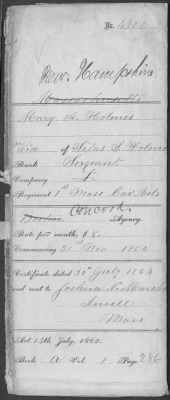 No.
New. Hampshire
Massachusetts
Mary A. Holmes
Wid. of Silas S. Holmes
Rank Sergeant
Company L.
Regiment 1st Mass Cav. Vols
Boston Concord. Agency.
Rate per month, $8.
Commencing 21st Nov 1862
Certificate dated 30th July 1863
and sent to Joshua N. Marshall
Lowell
Mass
Act 14th July, 1862.
Book A Vol. 1 Page 236